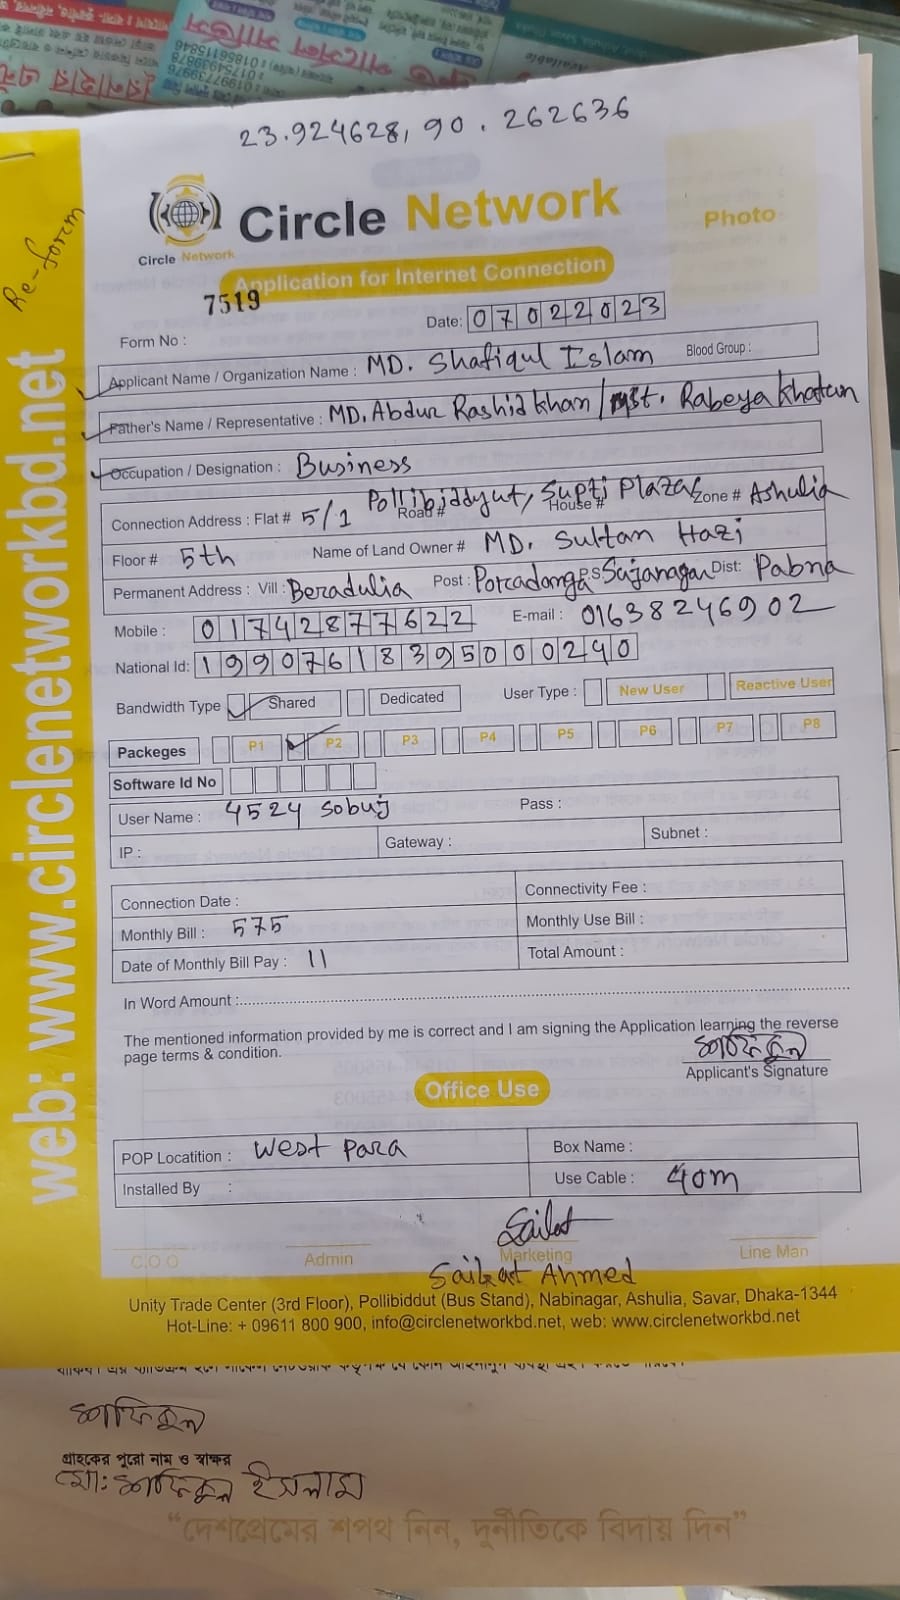 23.924628, 90.262636
Re-form
Circle Network
Circle Network
Photo
Application for Internet Connection
7519
Form No :
Date: 07022023
Applicant Name / Organization Name : MD. Shafiqul Islam Blood Group :
Father's Name / Representative : MD. Abdur Rashid khan / mst. Rabeya khatun
Occupation / Designation : Business
Connection Address : Flat # 5/1 Road # Pollibiddyut, House # Supti Plaza, Zone # Ashulia
Floor # 5th Name of Land Owner # MD. Sultan Hazi
Permanent Address : Vill : Beradulia Post : Porcadanga P.S: Sujanagar Dist: Pabna
Mobile : 01742877622 E-mail : 01638246902
National Id: 19907618395000290
Bandwidth Type Shared Dedicated User Type : New User Reactive User
Packeges P1 P2 P3 P4 P5 P6 P7 P8
Software Id No
User Name : 4524 sobuj Pass :
IP : Gateway : Subnet :
Connection Date : Connectivity Fee :
Monthly Bill : 575 Monthly Use Bill :
Date of Monthly Bill Pay : 11 Total Amount :
In Word Amount :
The mentioned information provided by me is correct and I am signing the Application learning the reverse
page terms & condition.
শফিকুল
Applicant's Signature
Office Use
POP Locatition : West para Box Name :
Installed By : Use Cable : 40m
Saikat
C.O.O Admin Marketing Line Man
Saikat Ahmed
Unity Trade Center (3rd Floor), Pollibiddut (Bus Stand), Nabinagar, Ashulia, Savar, Dhaka-1344
Hot-Line: + 09611 800 900, info@circlenetworkbd.net, web: www.circlenetworkbd.net
web: www.circlenetworkbd.net
শফিকুল
গ্রাহকের পুরো নাম ও স্বাক্ষর
মো: শফিকুল ইসলাম
“দেশপ্রেমের শপথ নিন, দুর্নীতিকে বিদায় দিন”